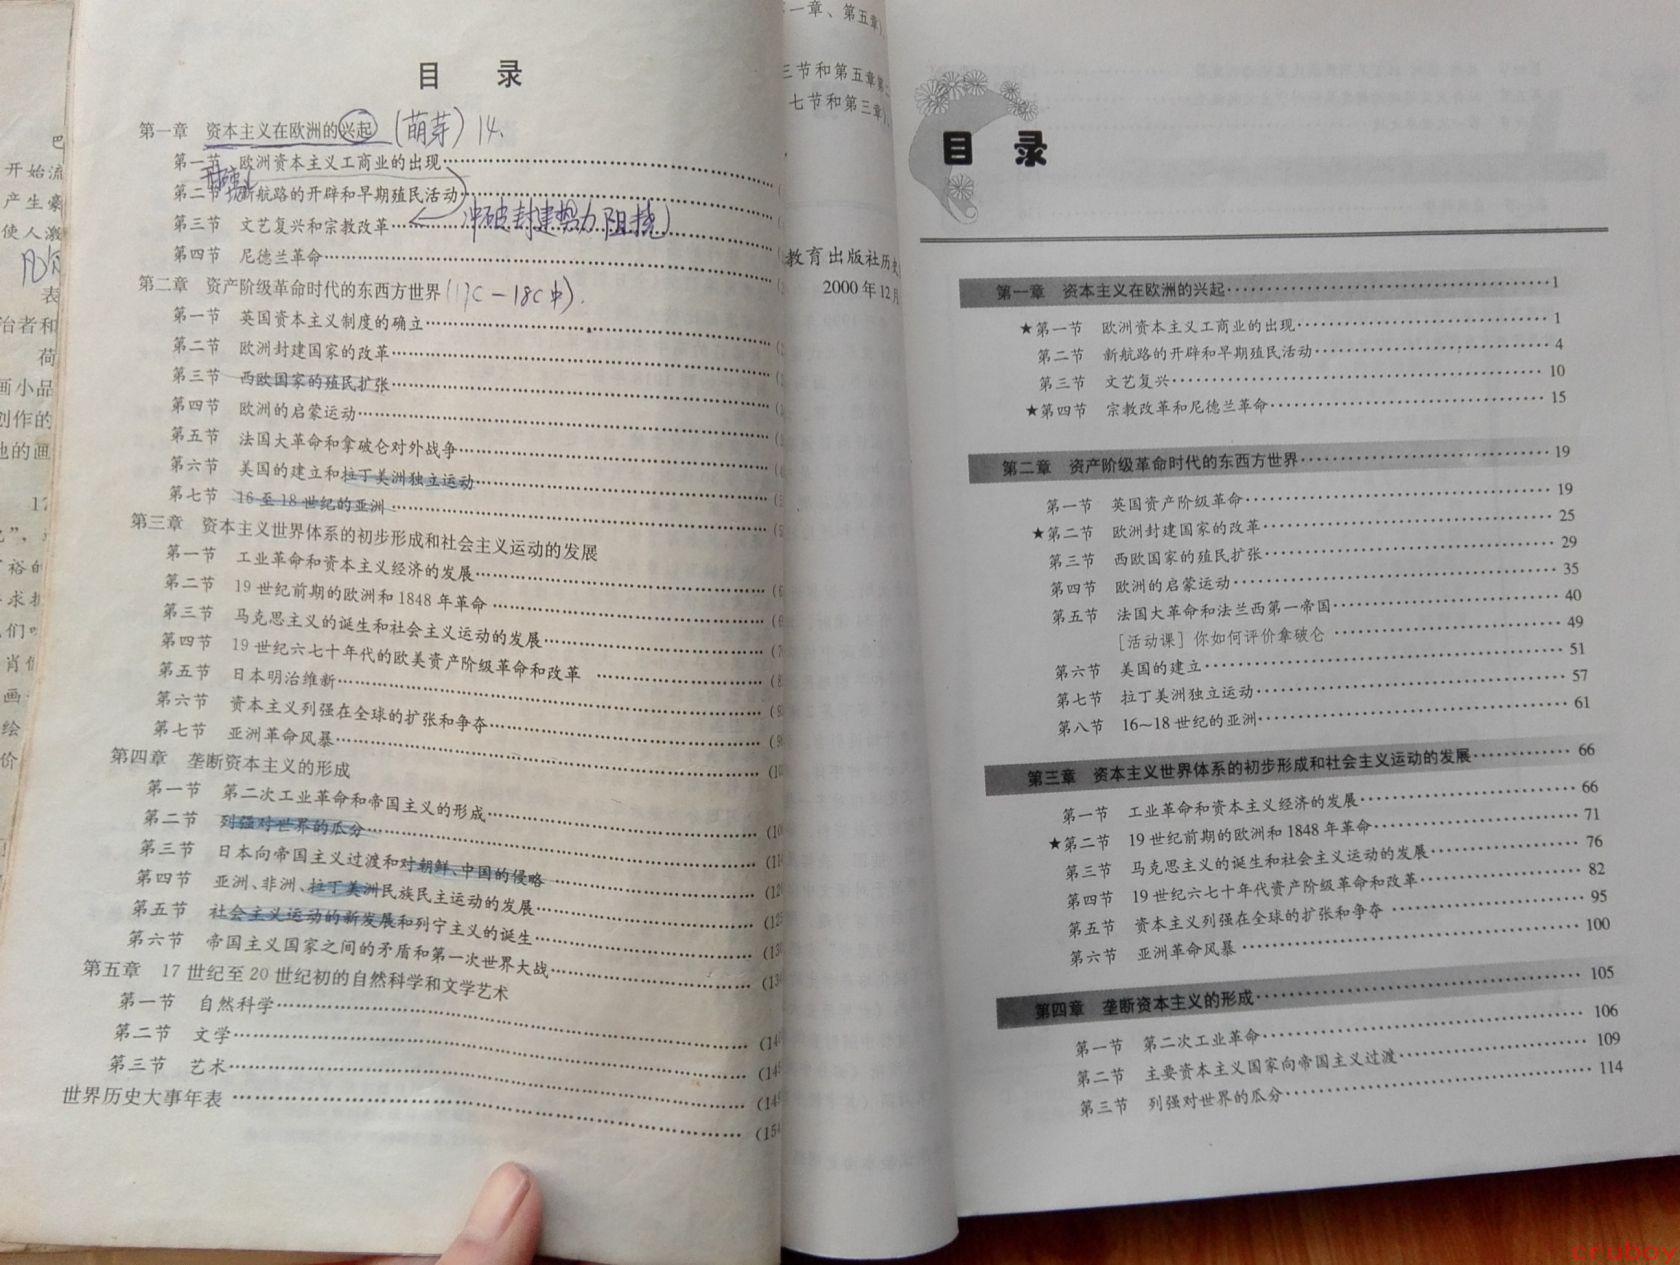 目 录
第一章 资本主义在欧洲的兴起 (萌芽) 14.
第一节 欧洲资本主义工商业的出现
第二节 新航路的开辟和早期殖民活动
第三节 文艺复兴和宗教改革 冲破封建势力阻挠
第四节 尼德兰革命
第二章 资产阶级革命时代的东西方世界 (17C—18C中).
第一节 英国资本主义制度的确立
第二节 欧洲封建国家的改革
第三节 西欧国家的殖民扩张
第四节 欧洲的启蒙运动
第五节 法国大革命和拿破仑对外战争
第六节 美国的建立和拉丁美洲独立运动
第七节 16至18世纪的亚洲
第三章 资本主义世界体系的初步形成和社会主义运动的发展
第一节 工业革命和资本主义经济的发展
第二节 19世纪前期的欧洲和1848年革命
第三节 马克思主义的诞生和社会主义运动的发展
第四节 19世纪六七十年代的欧美资产阶级革命和改革
第五节 日本明治维新
第六节 资本主义列强在全球的扩张和争夺
第七节 亚洲革命风暴
第四章 垄断资本主义的形成
第一节 第二次工业革命和帝国主义的形成
第二节 列强对世界的瓜分
第三节 日本向帝国主义过渡和对朝鲜、中国的侵略
第四节 亚洲、非洲、拉丁美洲民族民主运动的发展
第五节 社会主义运动的新发展和列宁主义的诞生
第六节 帝国主义国家之间的矛盾和第一次世界大战
第五章 17世纪至20世纪初的自然科学和文学艺术
第一节 自然科学
第二节 文学
第三节 艺术
世界历史大事年表 (154
一章、第五章)
三节和第五章第
七节和第三章)
教育出版社历史
2000年12月
目 录
第一章 资本主义在欧洲的兴起 1
★第一节 欧洲资本主义工商业的出现 1
第二节 新航路的开辟和早期殖民活动 4
第三节 文艺复兴 10
★第四节 宗教改革和尼德兰革命 15
第二章 资产阶级革命时代的东西方世界 19
第一节 英国资产阶级革命 19
★第二节 欧洲封建国家的改革 25
第三节 西欧国家的殖民扩张 29
第四节 欧洲的启蒙运动 35
第五节 法国大革命和法兰西第一帝国 40
[活动课] 你如何评价拿破仑 49
第六节 美国的建立 51
第七节 拉丁美洲独立运动 57
第八节 16~18世纪的亚洲 61
第三章 资本主义世界体系的初步形成和社会主义运动的发展 66
第一节 工业革命和资本主义经济的发展 66
★第二节 19世纪前期的欧洲和1848年革命 71
第三节 马克思主义的诞生和社会主义运动的发展 76
第四节 19世纪六七十年代资产阶级革命和改革 82
第五节 资本主义列强在全球的扩张和争夺 95
第六节 亚洲革命风暴 100
第四章 垄断资本主义的形成 105
第一节 第二次工业革命 106
第二节 主要资本主义国家向帝国主义过渡 109
第三节 列强对世界的瓜分 114
crubov